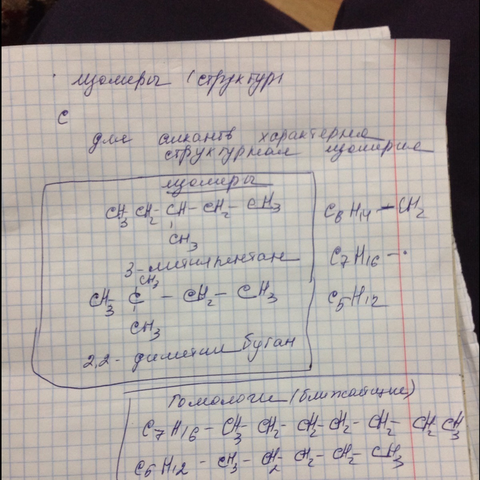 изомеры (структур)
С
для алканов характерна
структурная изомерия
изомеры
CH3 CH2 - CH - CH2 - CH3
CH3
3-метилпентан
CH3
CH3 - C - CH2 - CH3
CH3
2,2-диметил бутан
C6H14 - CH2
C7H16 -
C5H12
Гомологи (ближайшие)
C7H16 - CH3 - CH2 - CH2 - CH2 - CH2 - CH2 CH3
C5H12 - CH3 - CH2 - CH2 - CH2 - CH3